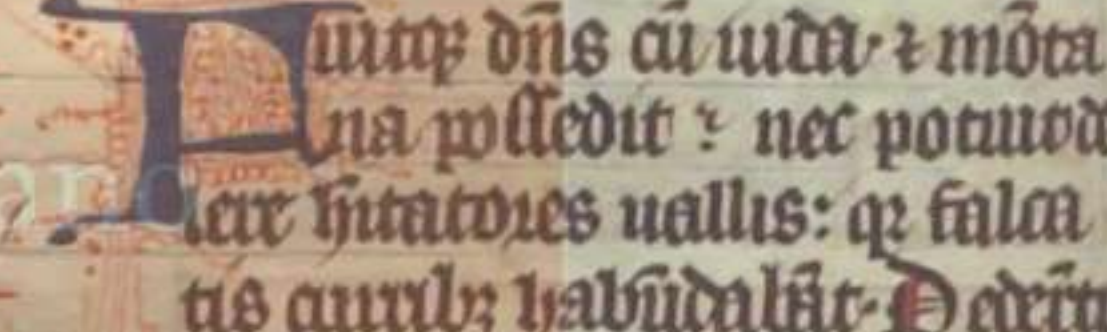 Fuitqꝫ dn̄s cū iuda· ⁊ mōta
na possedit ⁊ nec potuit d
lere hītatores uallis: qꝛ falca
tis curribꝫ habūdabāt· Dederūt